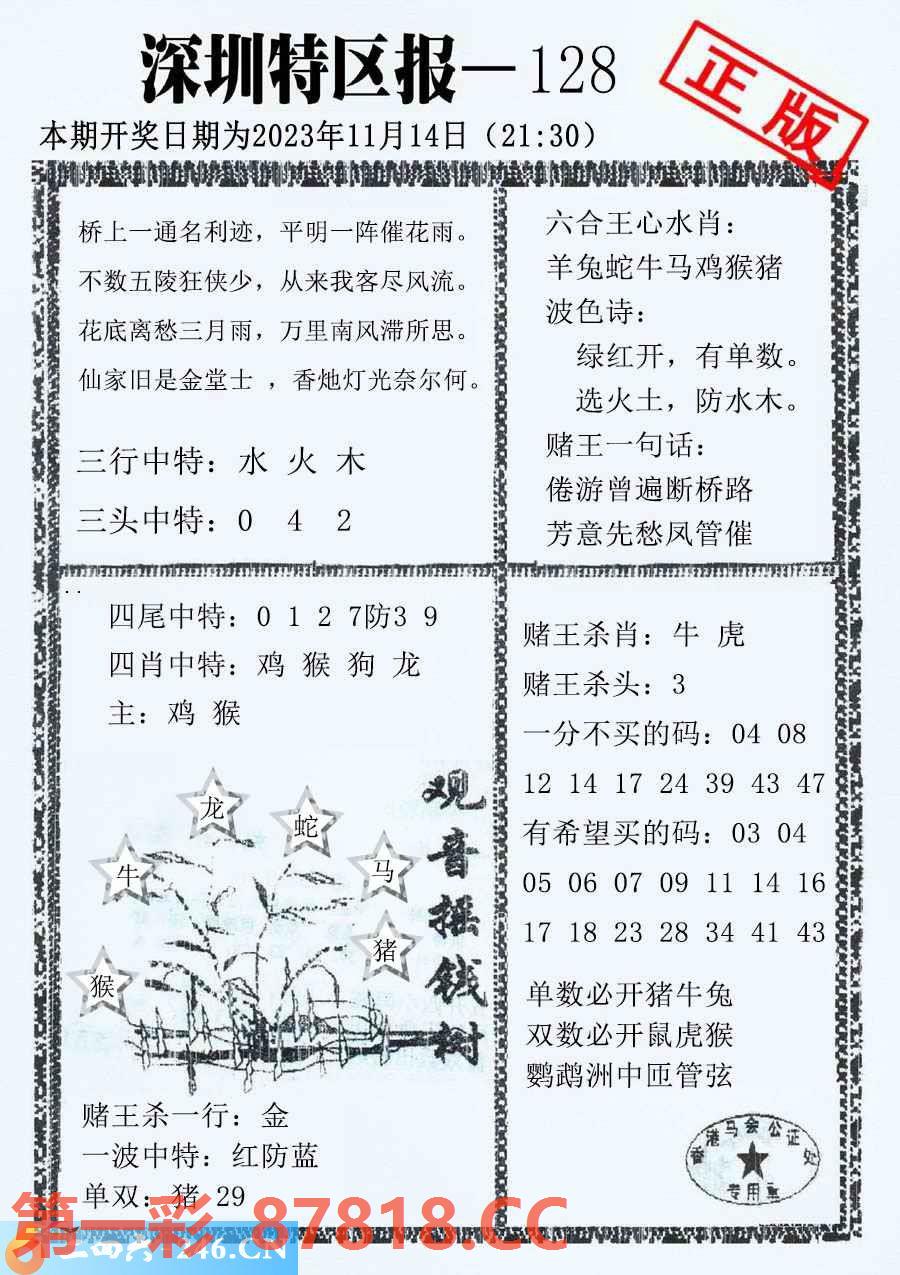 深圳特区报—128
正版
本期开奖日期为2023年11月14日（21:30）
桥上一通名利迹，平明一阵催花雨。
不数五陵狂侠少，从来我客尽风流。
花底离愁三月雨，万里南风滞所思。
仙家旧是金堂士 ，香灺灯光奈尔何。
三行中特：水 火 木
三头中特：0 4 2
六合王心水肖：
羊兔蛇牛马鸡猴猪
波色诗：
绿红开，有单数。
选火土，防水木。
赌王一句话：
倦游曾遍断桥路
芳意先愁凤管催
四尾中特：0 1 2 7防3 9
四肖中特：鸡 猴 狗 龙
主：鸡 猴
龙
蛇
牛
马
猪
猴
观音摇钱树
赌王杀一行：金
一波中特：红防蓝
单双：猪 29
赌王杀肖：牛 虎
赌王杀头：3
一分不买的码：04 08
12 14 17 24 39 43 47
有希望买的码：03 04
05 06 07 09 11 14 16
17 18 23 28 34 41 43
单数必开猪牛兔
双数必开鼠虎猴
鹦鹉洲中匝管弦
香港马会公证处
专用章
第一彩 87818.CC
246.CN